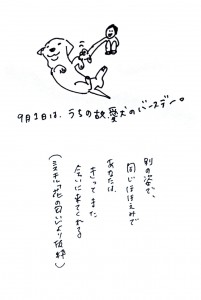 9月1日は、うちの故愛犬のバースデー。
別の姿で、
同じほほえみで
あなたは
きってまた
会いに来てくれる
(ミスチル「花の匂い」より抜粋)